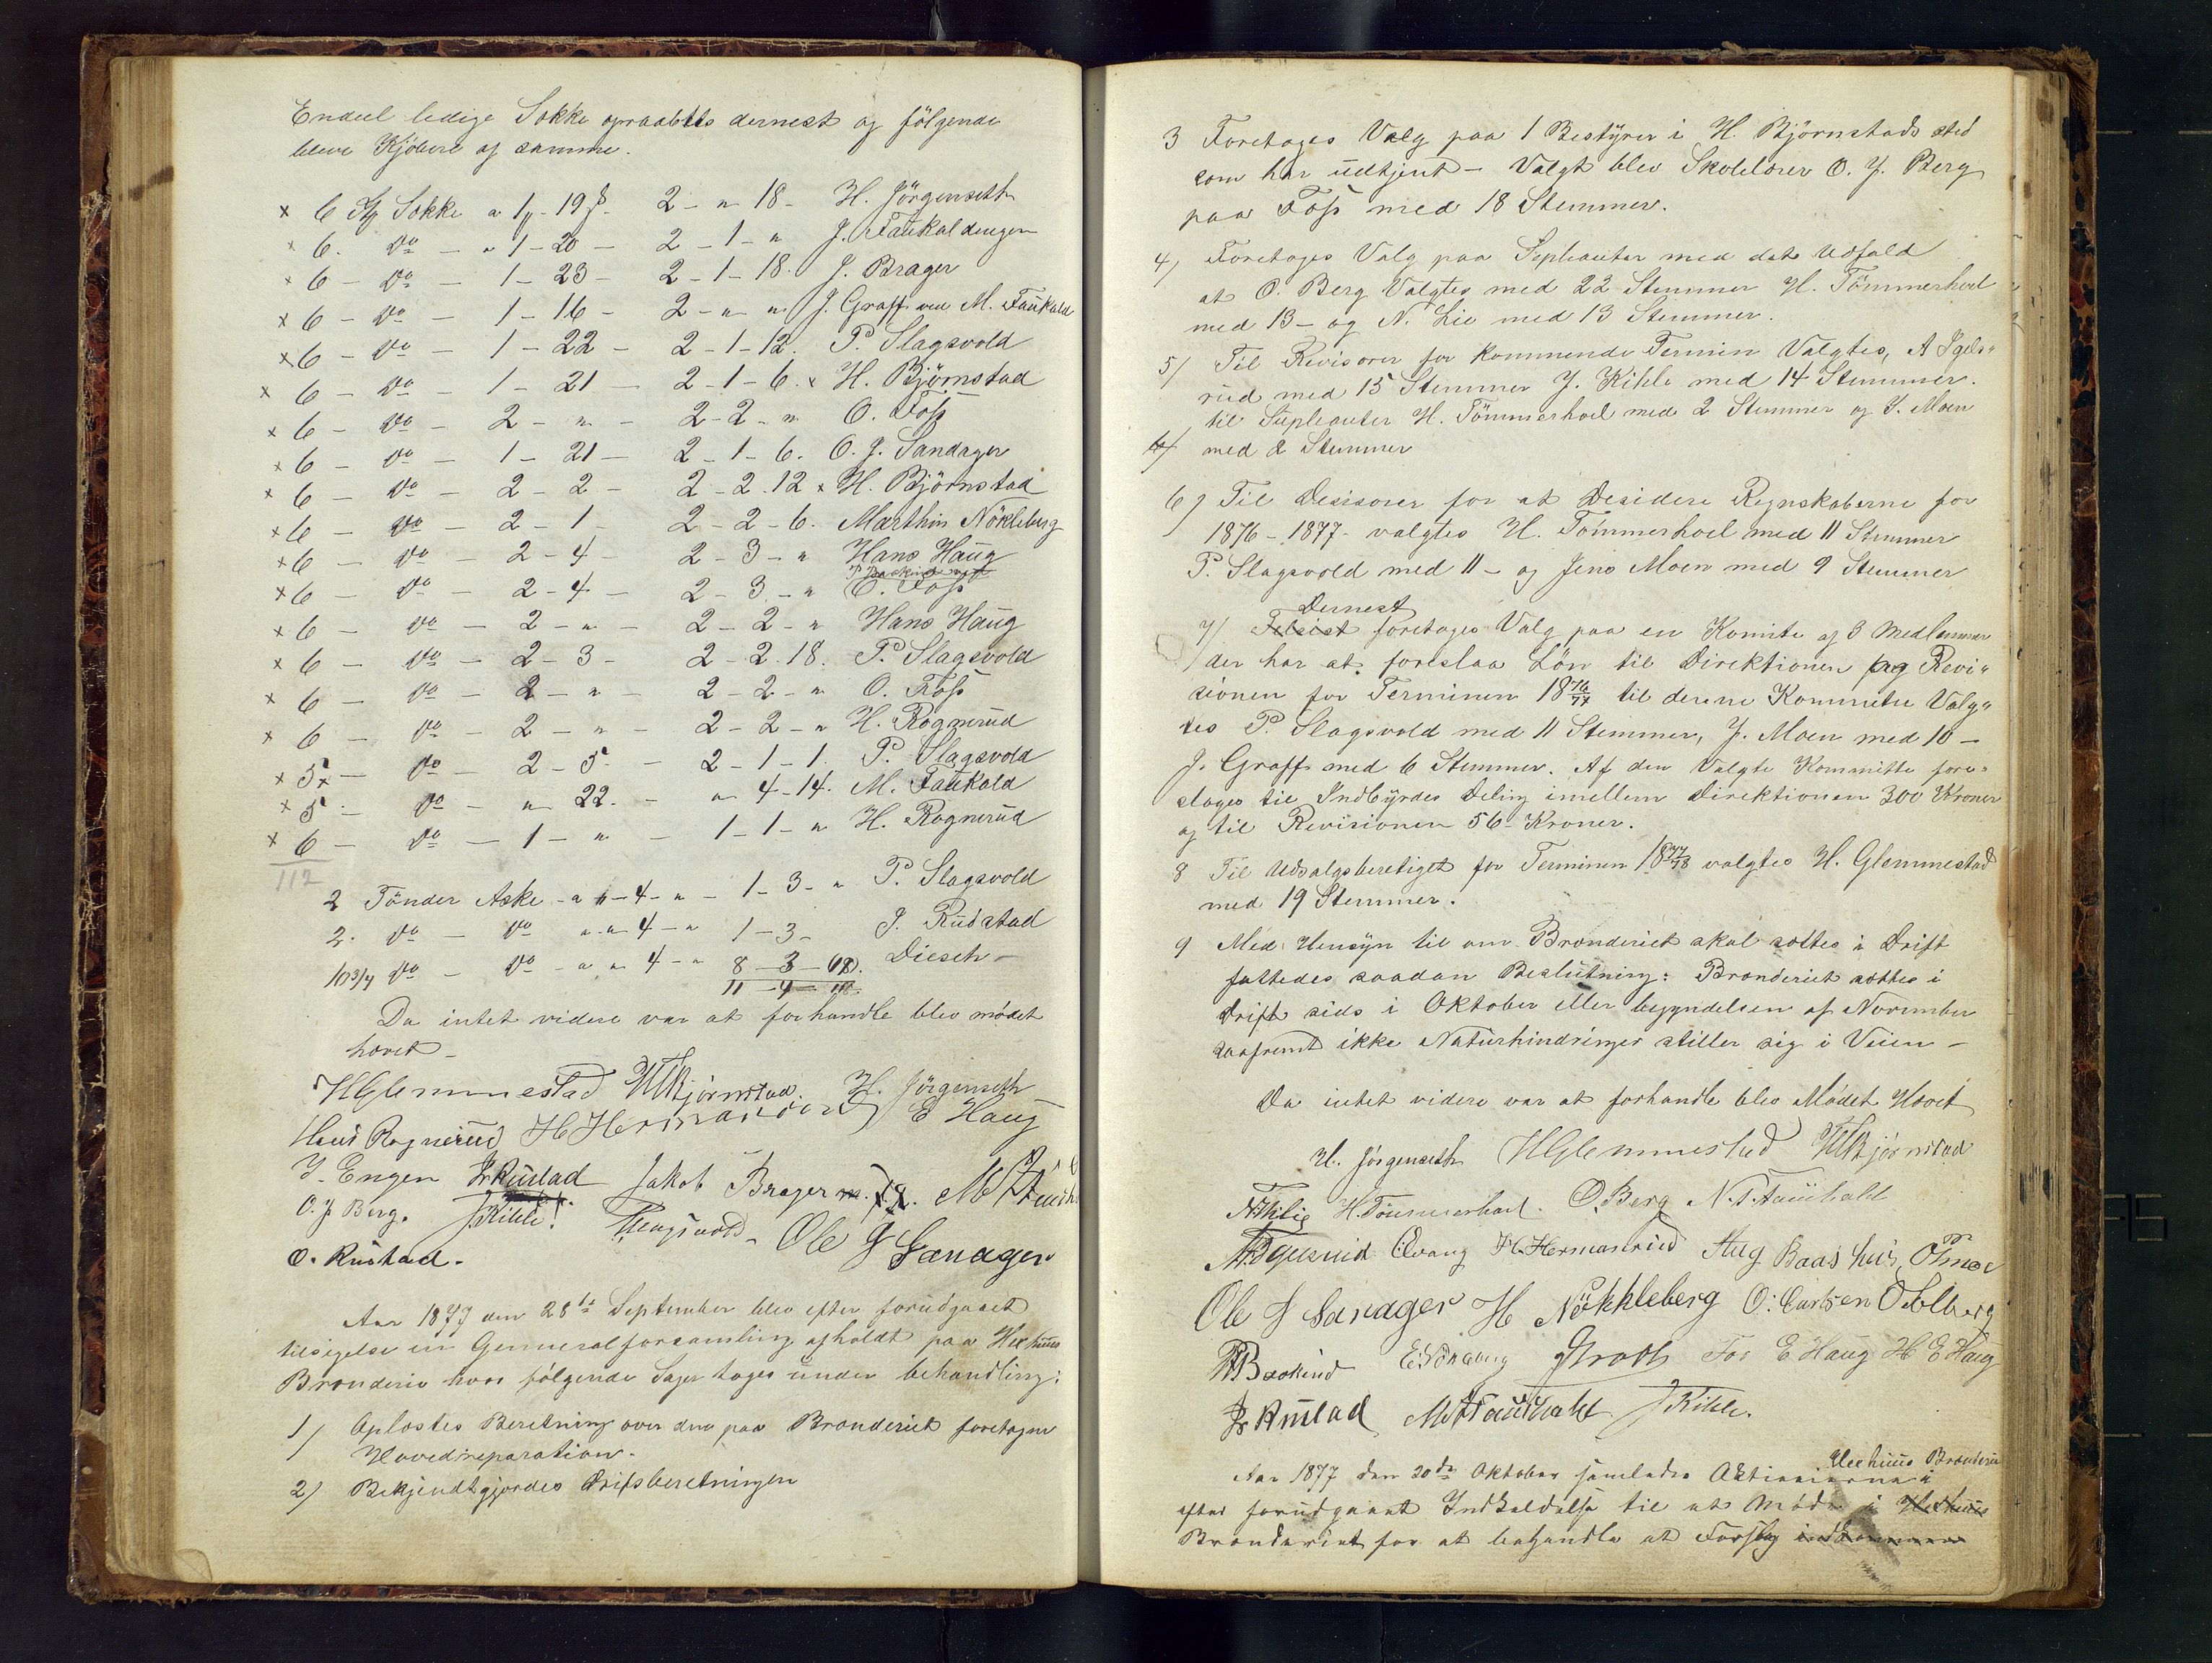 Endeel ledige Sække opraabtes dernest og følgende
bleve Kjøbere af samme.
x 6 St Sække a 1 - 19 ß. 2 - " 18 - H. Jörgenseth
x 6. do - " 1 - 20 - 2 - 1 - " J. Faukaldengen
x 6 - do - 1 - 23 - 2 - 1 - 18. J. Brager
x 6 - do - 1 - 16 - 2 - " " J. Graff ved M. Faukald
x 6 - do - 1 - 22 - 2 - 1 - 12. P. Slagsvold
x 6 - do - 1 - 21 - 2 - 1 - 6. x H. Björnstad
x 6 - do - 2 - " - 2 - 2 - " O. Foss
x 6 - do - 1 - 21 - 2 - 1 - 6. O. J. Sandager
x 6 - do - 2 - 2 - 2 - 2. 12 x H. Björnstad
x 6 - do - 2 - 1 - 2 - 2 - 6. Marthin Nökleberg
x 6 - do - 2 - 4 - 2 - 3 - " Hans Haug
x 6 - do - 2 - 4 - 2 - 3 - " O. Foss
x 6 - do - 2 - " - 2 - 2 - " Hans Haug
x 6 - do - 2 - 3 - 2 - 2. 18. P. Slagsvold
x 6 - do - 2 - " - 2 - 2 - " O. Foss
x 6 - do - 2 - " - 2 - 2 - " H. Rognerud
x 5x - do - 2 - 5 - 2 - 1 - 1. P. Slagsvold
x 5 - do - " 22. - " 4 - 14. M. Faukald
x 6 - do - 1 - " - 1 - 1 - " H. Rognerud
112
2 Tönder Aske - a " - 4 - " - 1 - 3 - " P. Slagsvold
2. do - do " - " 4 - " 1 - 3 - J. Rudstad
10 3/4 do - do - " " 4 - " 8 - 3 - 18. Diesch -
11 - 4 - 18.
Da intet videre var at forhandle blev mødet
hævet -
HGlemmestad HBjörnstad. H. Jörgenseth
Hans Rognerud H Hermanderud E Haug
J. Engen Jr Rustad Jakob Brager M Faukald
O. J. Berg. J Kihle! PSlagsvold - Ole J Sandager
O. Rustad -
Aar 1877 den 28de September blev efter forudgaaet
tilsigelse en Generalforsamling afholdt paa Hexhuus
Brænderie hvor følgende Sager toges under behandling:
1) Oplæstes Beretning over den paa Brænderiet foretagne
Hovedreparation.
2) Bekjendtgjordes Driftsberetningen
3 Foretoges Valg paa 1 Bestyrer i H. Björnstads sted
som har udtjent - Valgt blev Skolelærer O. J. Berg
paa Foss med 18 Stemmer.
4) Foretoges Valg paa Supleanter med det Udfald
at O. Berg Valgtes med 22 Stemmer H. Tömmerhoel
med 13 - og N. Lie med 13 Stemmer.
5) Til Revisorer for kommende Termin Valgtes, A Igels-
rud med 15 Stemmer J. Kihle med 14 Stemmer.
til Supleanter H. Tömmerhoel med 2 Stemmer og J. Moen
6) med 2 Stemmer
6) Til Desisorer for at Desidere Regnskaberne for
1876 - 1877 - valgtes H. Tömmerhoel med 11 Stemmer
P. Slagsvold med 11 - og Jens Moen med 9 Stemmer
Dernest
7) Felsist foretoges Valg paa en Komite af 3 Medlemmer
der har at foreslaa Løn til Direktionen og Revi-
sionen for Terminen 1876/77 til denne Kommitee Valg-
tes P. Slagsvold med 11 Stemmer, J. Moen med 10 -
J. Graff med 6 Stemmer. Af den Valgte Kommitte fore-
sloges til Indbyrdes Deling imellem Direktionen 300 Kroner
og til Revisionen 56 - Kroner.
8 Til Udsalgsberetiget for Terminen 1877/78 valgtes H. Glemmestad
med 19 Stemmer.
9 Med Hensyn til om Brænderiet skal sættes i Drift
fattedes saadan Beslutning: Brænderiet sættes i
Drift sids i Oktober eller begyndelsen af November
saafremt ikke Naturhindringer stiller sig i Veien -
Da intet videre var at forhandle blev Mødet Hævet
H. Jörgenseth HGlemmestad HBjörnstad
NThlie H. Tömmerhoel. O. Berg N. T. Faukald
A Igelsrud CEvang H. Hermanrud Aug Baashus,
Ole J Sanager H Nökkleberg O. Carlsen O Solberg
P Baskind Graff For E Haug H E Haug
Jr Rustad M Faukald J Kihle.
Hexhuus Brænderie
Aar 1877 den 20de Oktober samledes Aktionærerne i
efter forudgaaet Indkaldelse til et Møde i Hexhuus
Brænderiet for at behandle et Forslag indkommen